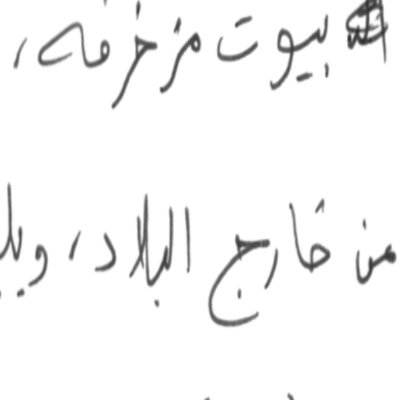 بيوت مزخرفه،
من خارج البلاد، ويل